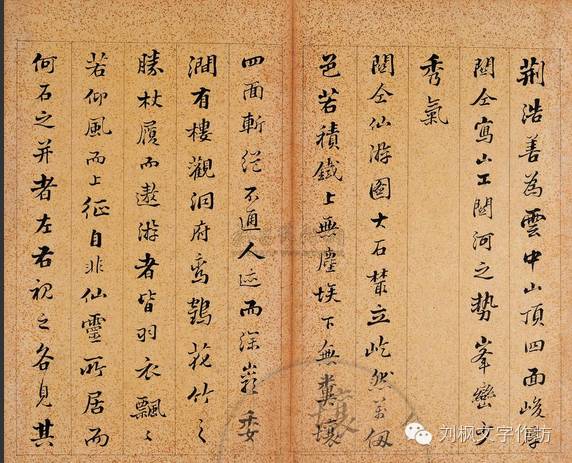 荆浩善為雲中山頂四面峻厚
關仝寫山工關河之勢峯巒少
秀氣
關仝仙游圖大石叢立屹然萬仞
色若積鐵上無塵埃下無糞壤
四面斬絕不通人迹而深巖委
澗有樓觀洞府鸞鶴花竹之
勝杖履而遨游者皆羽衣飄〻
若御風而上征自非仙靈所居而
何石之并者左右視之各見其
刘枫文字作坊